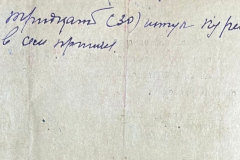 тридцать (30) штук кур
в сем принял.